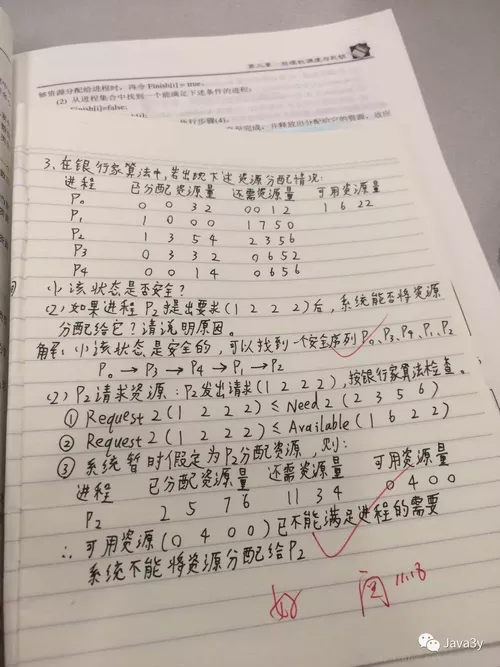 第三章 处理机调度与死锁
够资源分配给进程时，再令Finish[i]=true。
(2) 从进程集合中找到一个能满足下述条件的进程：
Finish[i]=false;
执行步骤(4)。
3、在银行家算法中，若出现下述资源分配情况：
进程 已分配资源量 还需资源量 可用资源量
P₀ 0 0 3 2 0 0 1 2 1 6 2 2
P₁ 1 0 0 0 1 7 5 0
P₂ 1 3 5 4 2 3 5 6
P₃ 0 3 3 2 0 6 5 2
P₄ 0 0 1 4 0 6 5 6
(1) 该状态是否安全？
(2) 如果进程P₂提出要求(1 2 2 2)后，系统能否将资源
分配给它？请说明原因。
解：(1) 该状态是安全的，可以找到一个安全序列P₀、P₃、P₄、P₁、P₂
P₀ → P₃ → P₄ → P₁ → P₂
(2) P₂请求资源：P₂发出请求(1 2 2 2)，按银行家算法检查。
① Request 2 (1 2 2 2) ≤ Need 2 (2 3 5 6)
② Request 2 (1 2 2 2) ≤ Available (1 6 2 2)
③ 系统暂时假定为P₂分配资源，则：
进程 已分配资源量 还需资源量 可用资源量
P₂ 2 5 7 6 1 1 3 4 0 4 0 0
∴ 可用资源(0 4 0 0)已不能满足进程的需要
系统不能将资源分配给P₂
阅 11.18
Java3y